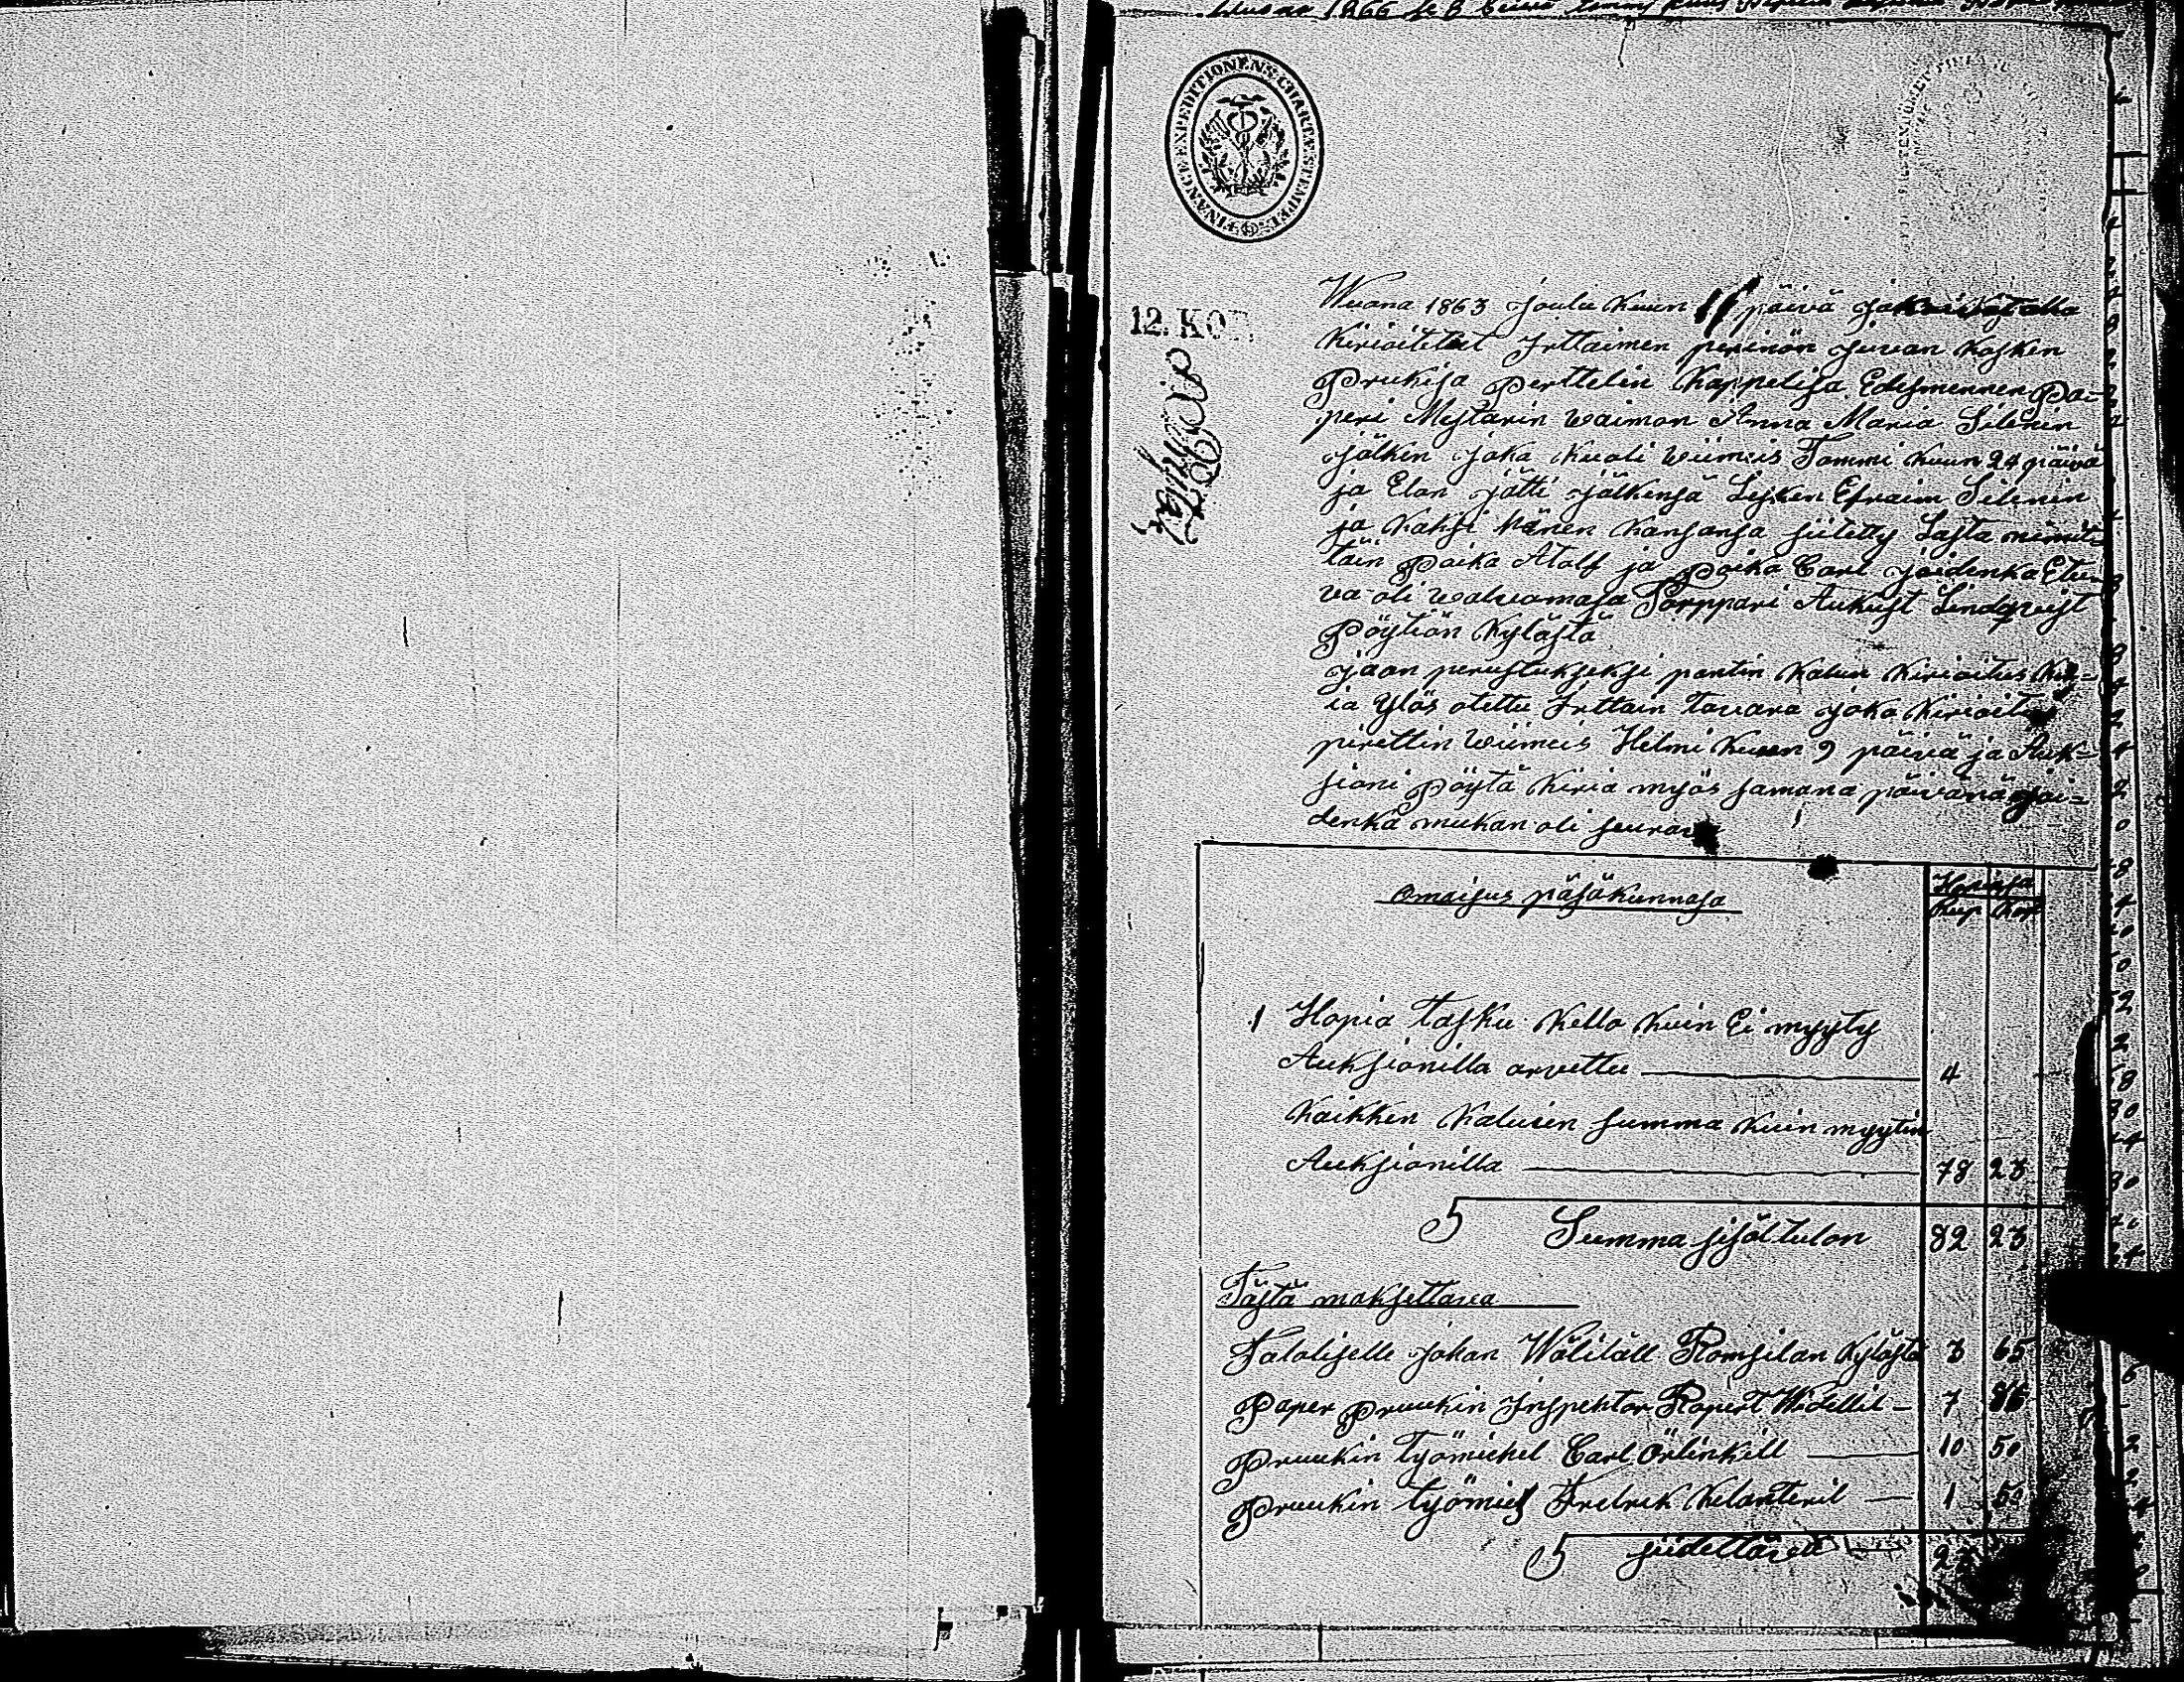 1866
FINANCE EXPEDITIONENS CHARTÆ STEMPEL
12. KOP.
Wuona 1863 Joulu Kuun 11 päivä
Kirioitetut Irttaimen perinön Juvan Kosken
Prukisa Perttelin Kappelisa Edesmennen Pa-
peri Mestarin waimon Anna Maria Silenin
jälken joka Kuoli wiimeis Tammi Kuun 24 päivä
ja Elon jätti jälkensä Lesken Efraim Silenin
ja Kaksi hänen Kansansa siitetty Lasta nimit-
täin Poika Atolf ja Poika Carl joidenka Etu-
va oli walvomasa Torppari Aukust Lindqvist
Pöytiön Kylästä
jaon perustukseksi pantin Kalun Kirioitus Kir-
ia Ylös otettu Irttain Tavara joka Kirioitus
pirettin wiimeis Helmi Kuun 9 päivä ja Auk-
sioni Pöytä Kiria myös samana päivänä joi-
denka mukan oli seurava
Omaisus päsäkunnasa
Hopiasa
Rup Kop
1 Hopia Tasku Kello Kuin Ei myyty
Auksionilla arvettu 4
Kaikken Kaluin summa Kuin myytin
Auksionilla 78 23
S Summa sisältulon 82 23
Tästä maksettava
Taloliselle Johan Wälitall Romsilan Kylästä 3 65
Paper Pruukin Inspehtor Ropert Widellil - 7 86
Pruukin Työmiehel Carl Örlinkill 10 50
Pruukin Työmies Fredrik Kelanteril 1 50
S siidettävä